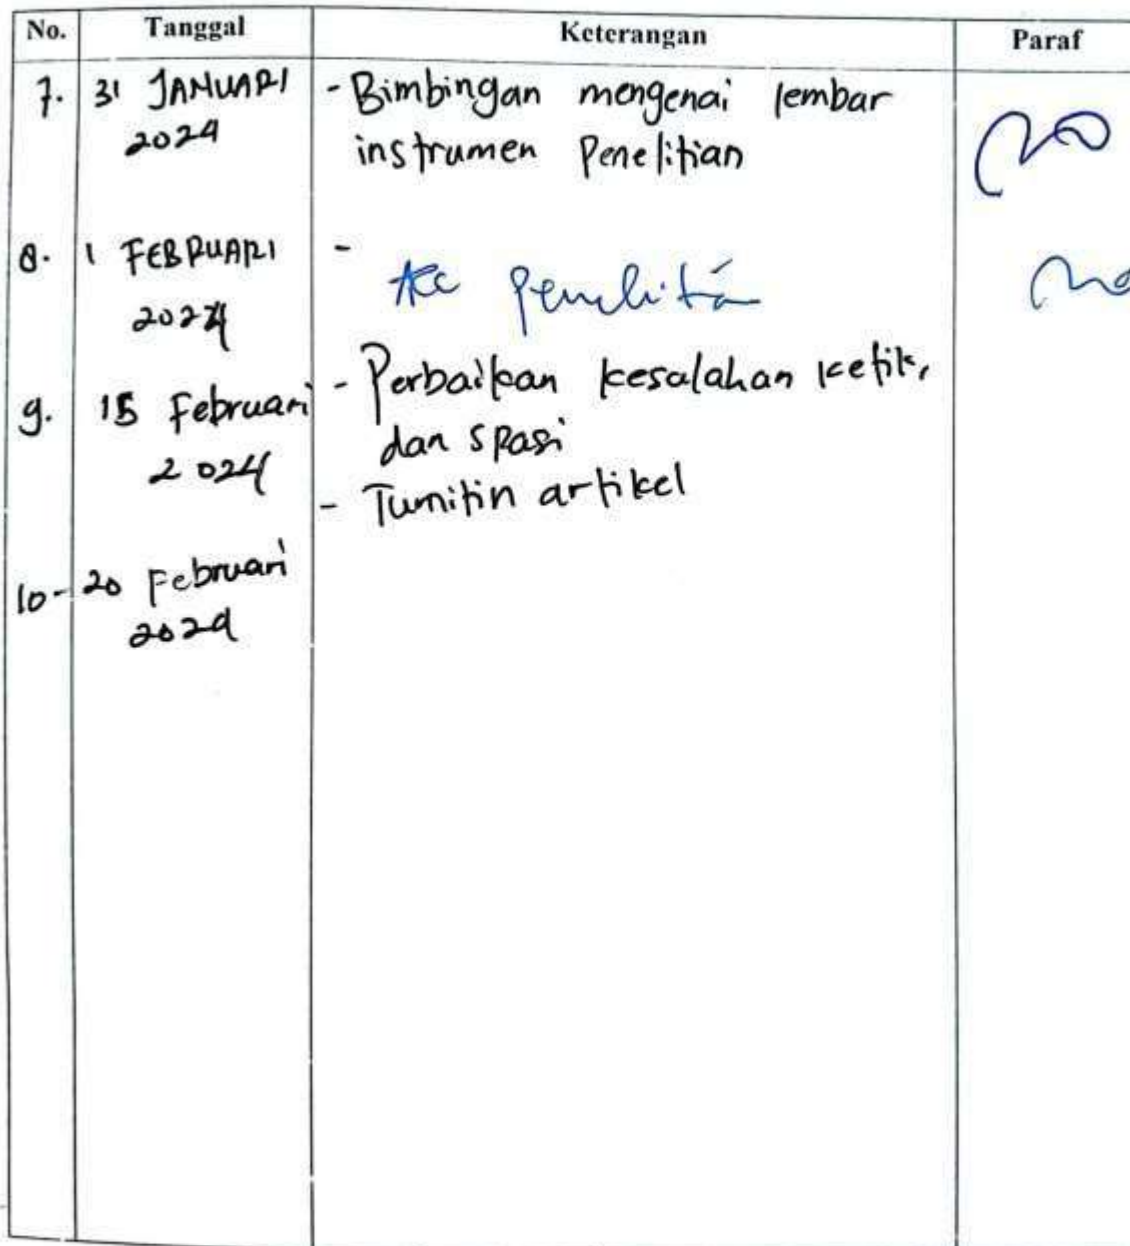 No. Tanggal Keterangan Paraf
7. 31 JANUARI - Bimbingan mengenai lembar
2024 instrumen Penelitian
8. 1 FEBRUARI -
Acc penelitian
2024
9. 15 Februari - Perbaikan kesalahan ketik,
dan spasi
2024
- Turnitin artikel
10- 20 Februari
2024